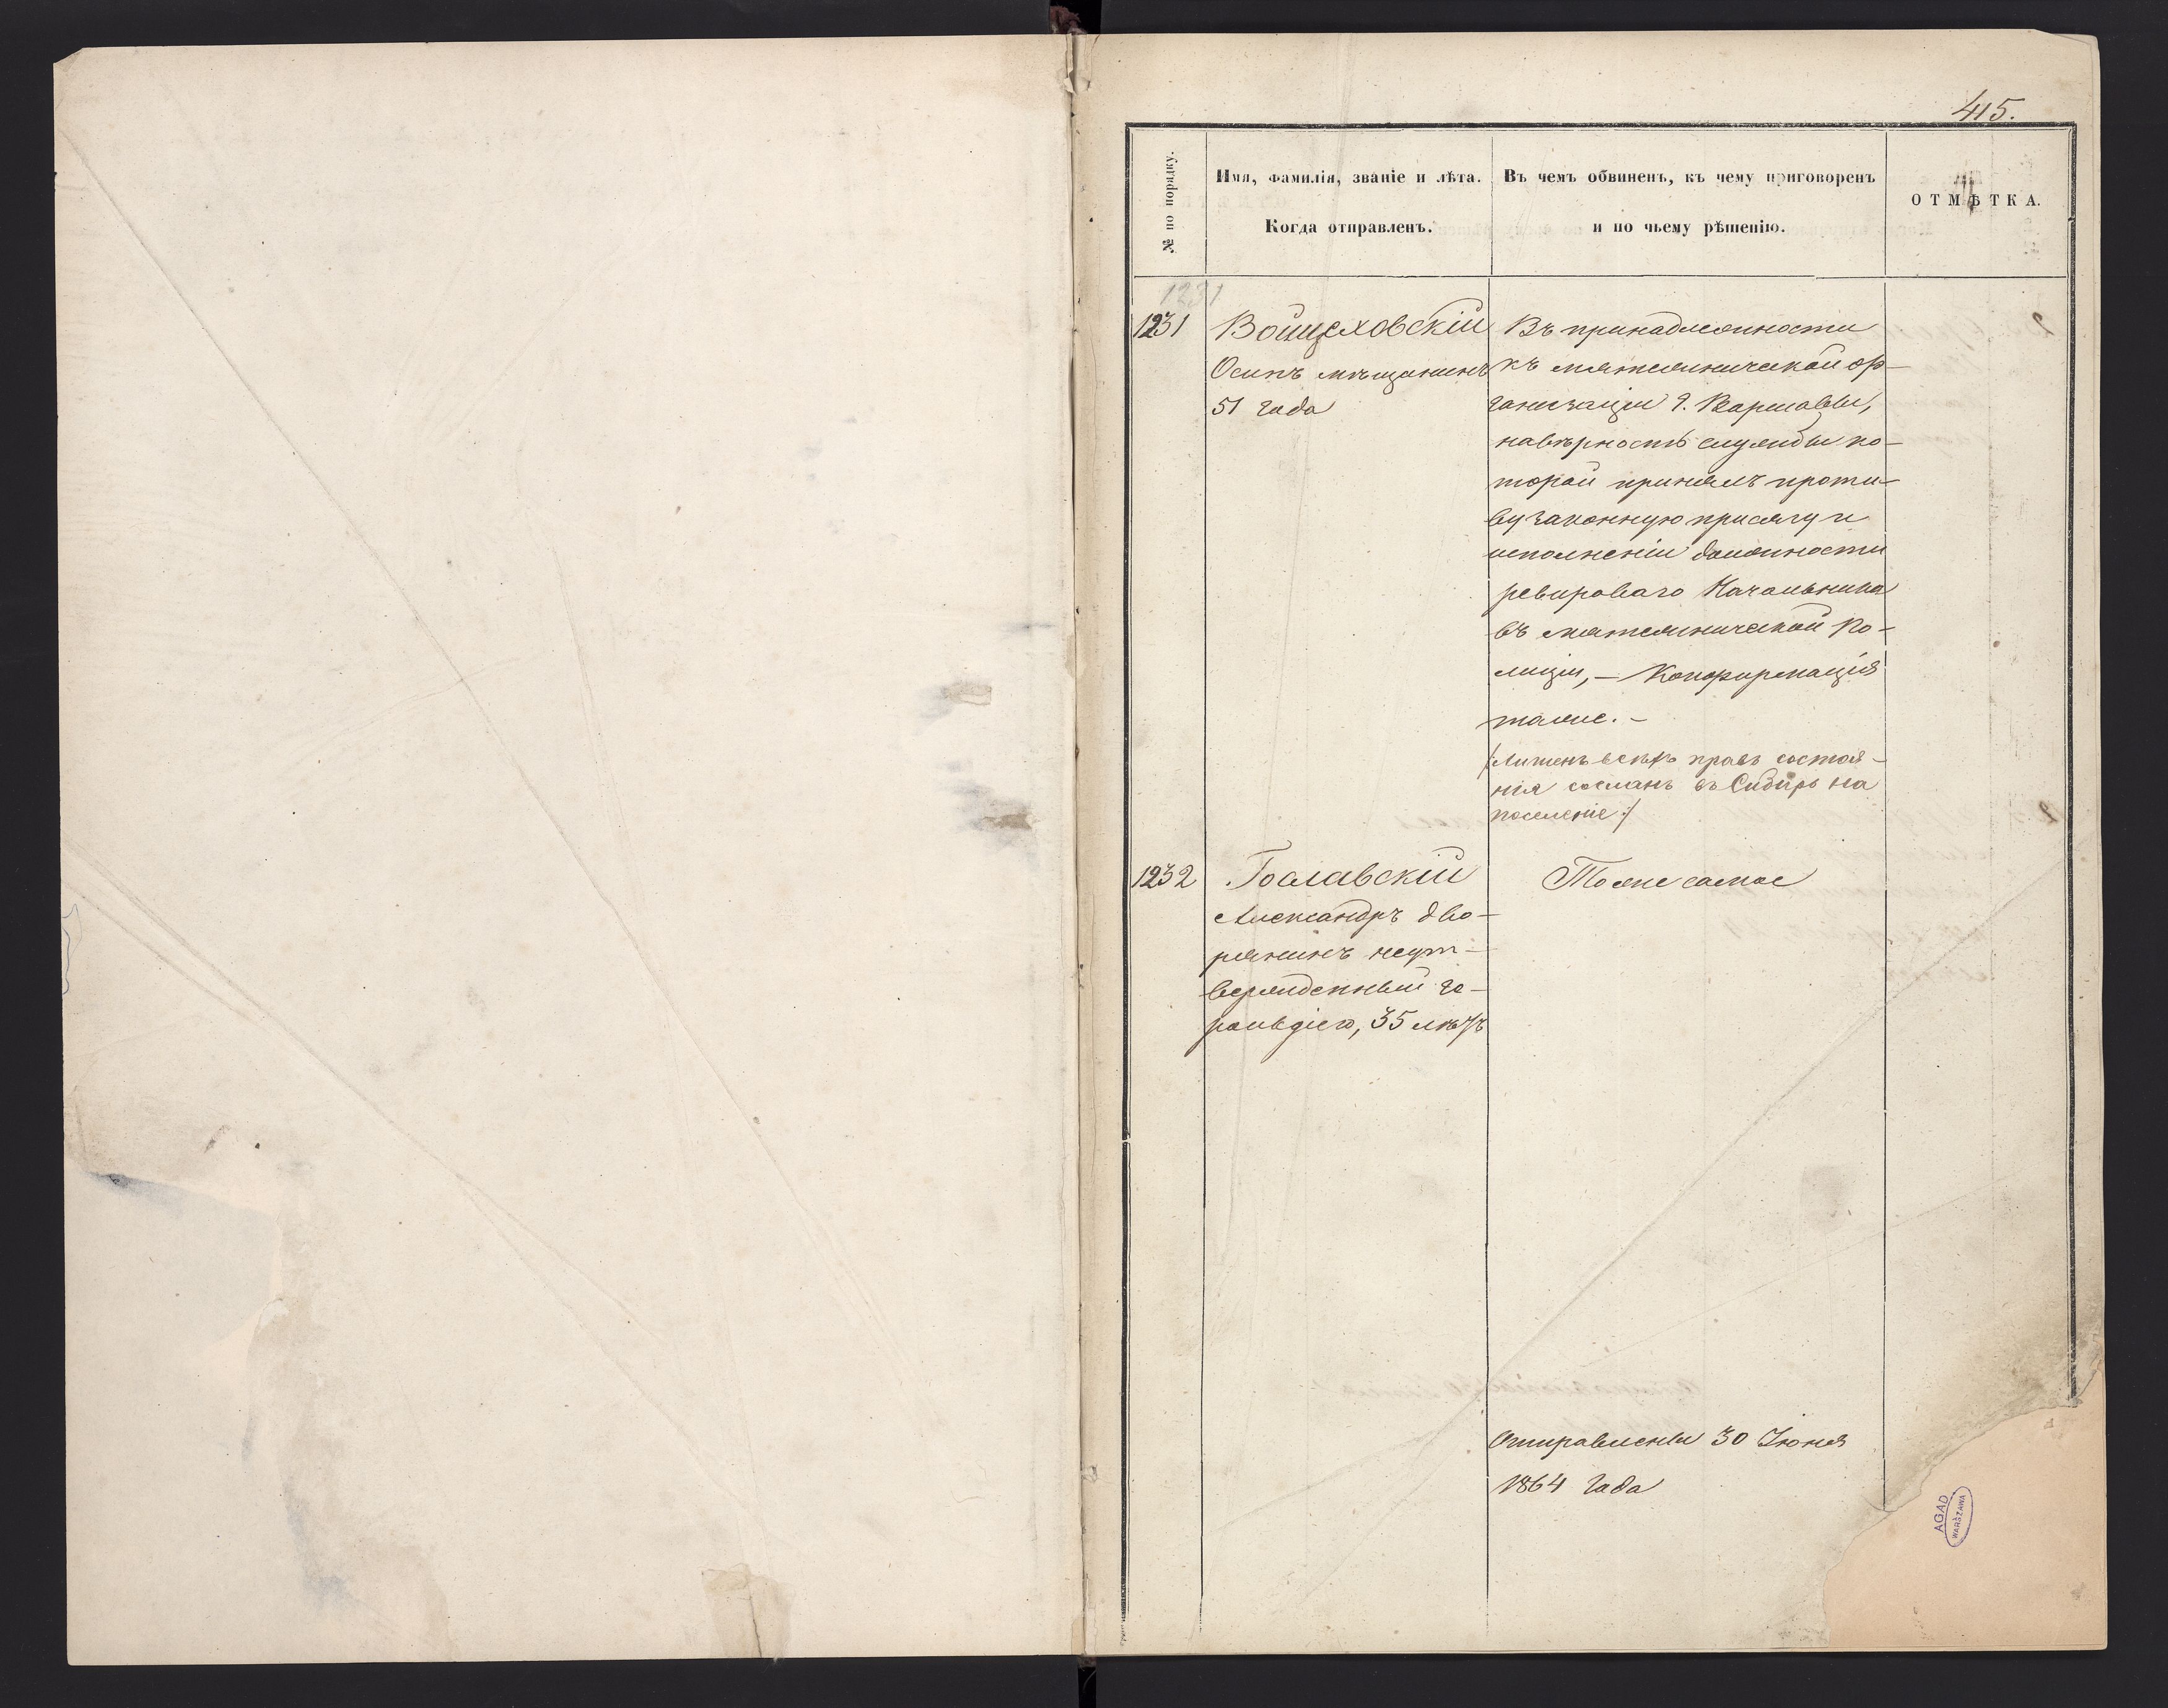 415.
№ по порядку.
Имя, фамилія, званіе и лѣта.
Когда отправленъ.
Въ чемъ обвиненъ, къ чему приговоренъ
и по чьему рѣшенію.
ОТМѢТКА.
1231
1231
Войцеховскій
Осипъ мѣщанинъ
51 года
Въ принадлежности
къ мятежнической ор-
ганизаціи г. Варшавы,
навѣрность службы ко-
торой принялъ проти-
вузаконную присягу и
исполненіи должности
ревироваго Начальника
въ мятежнической По-
лиціи, — Конфирмація
таже. —
/Лишенъ всѣхъ правъ состоя-
нія сосланъ въ Сибирь на
поселеніе:/
1232
Гославскій
Александръ дво-
рянинъ неут-
вержденный Ге-
рольдіею, 35 лѣтъ
Тоже самое
Отправлены 30 Іюня
1864 года
AGAD
WARSZAWA